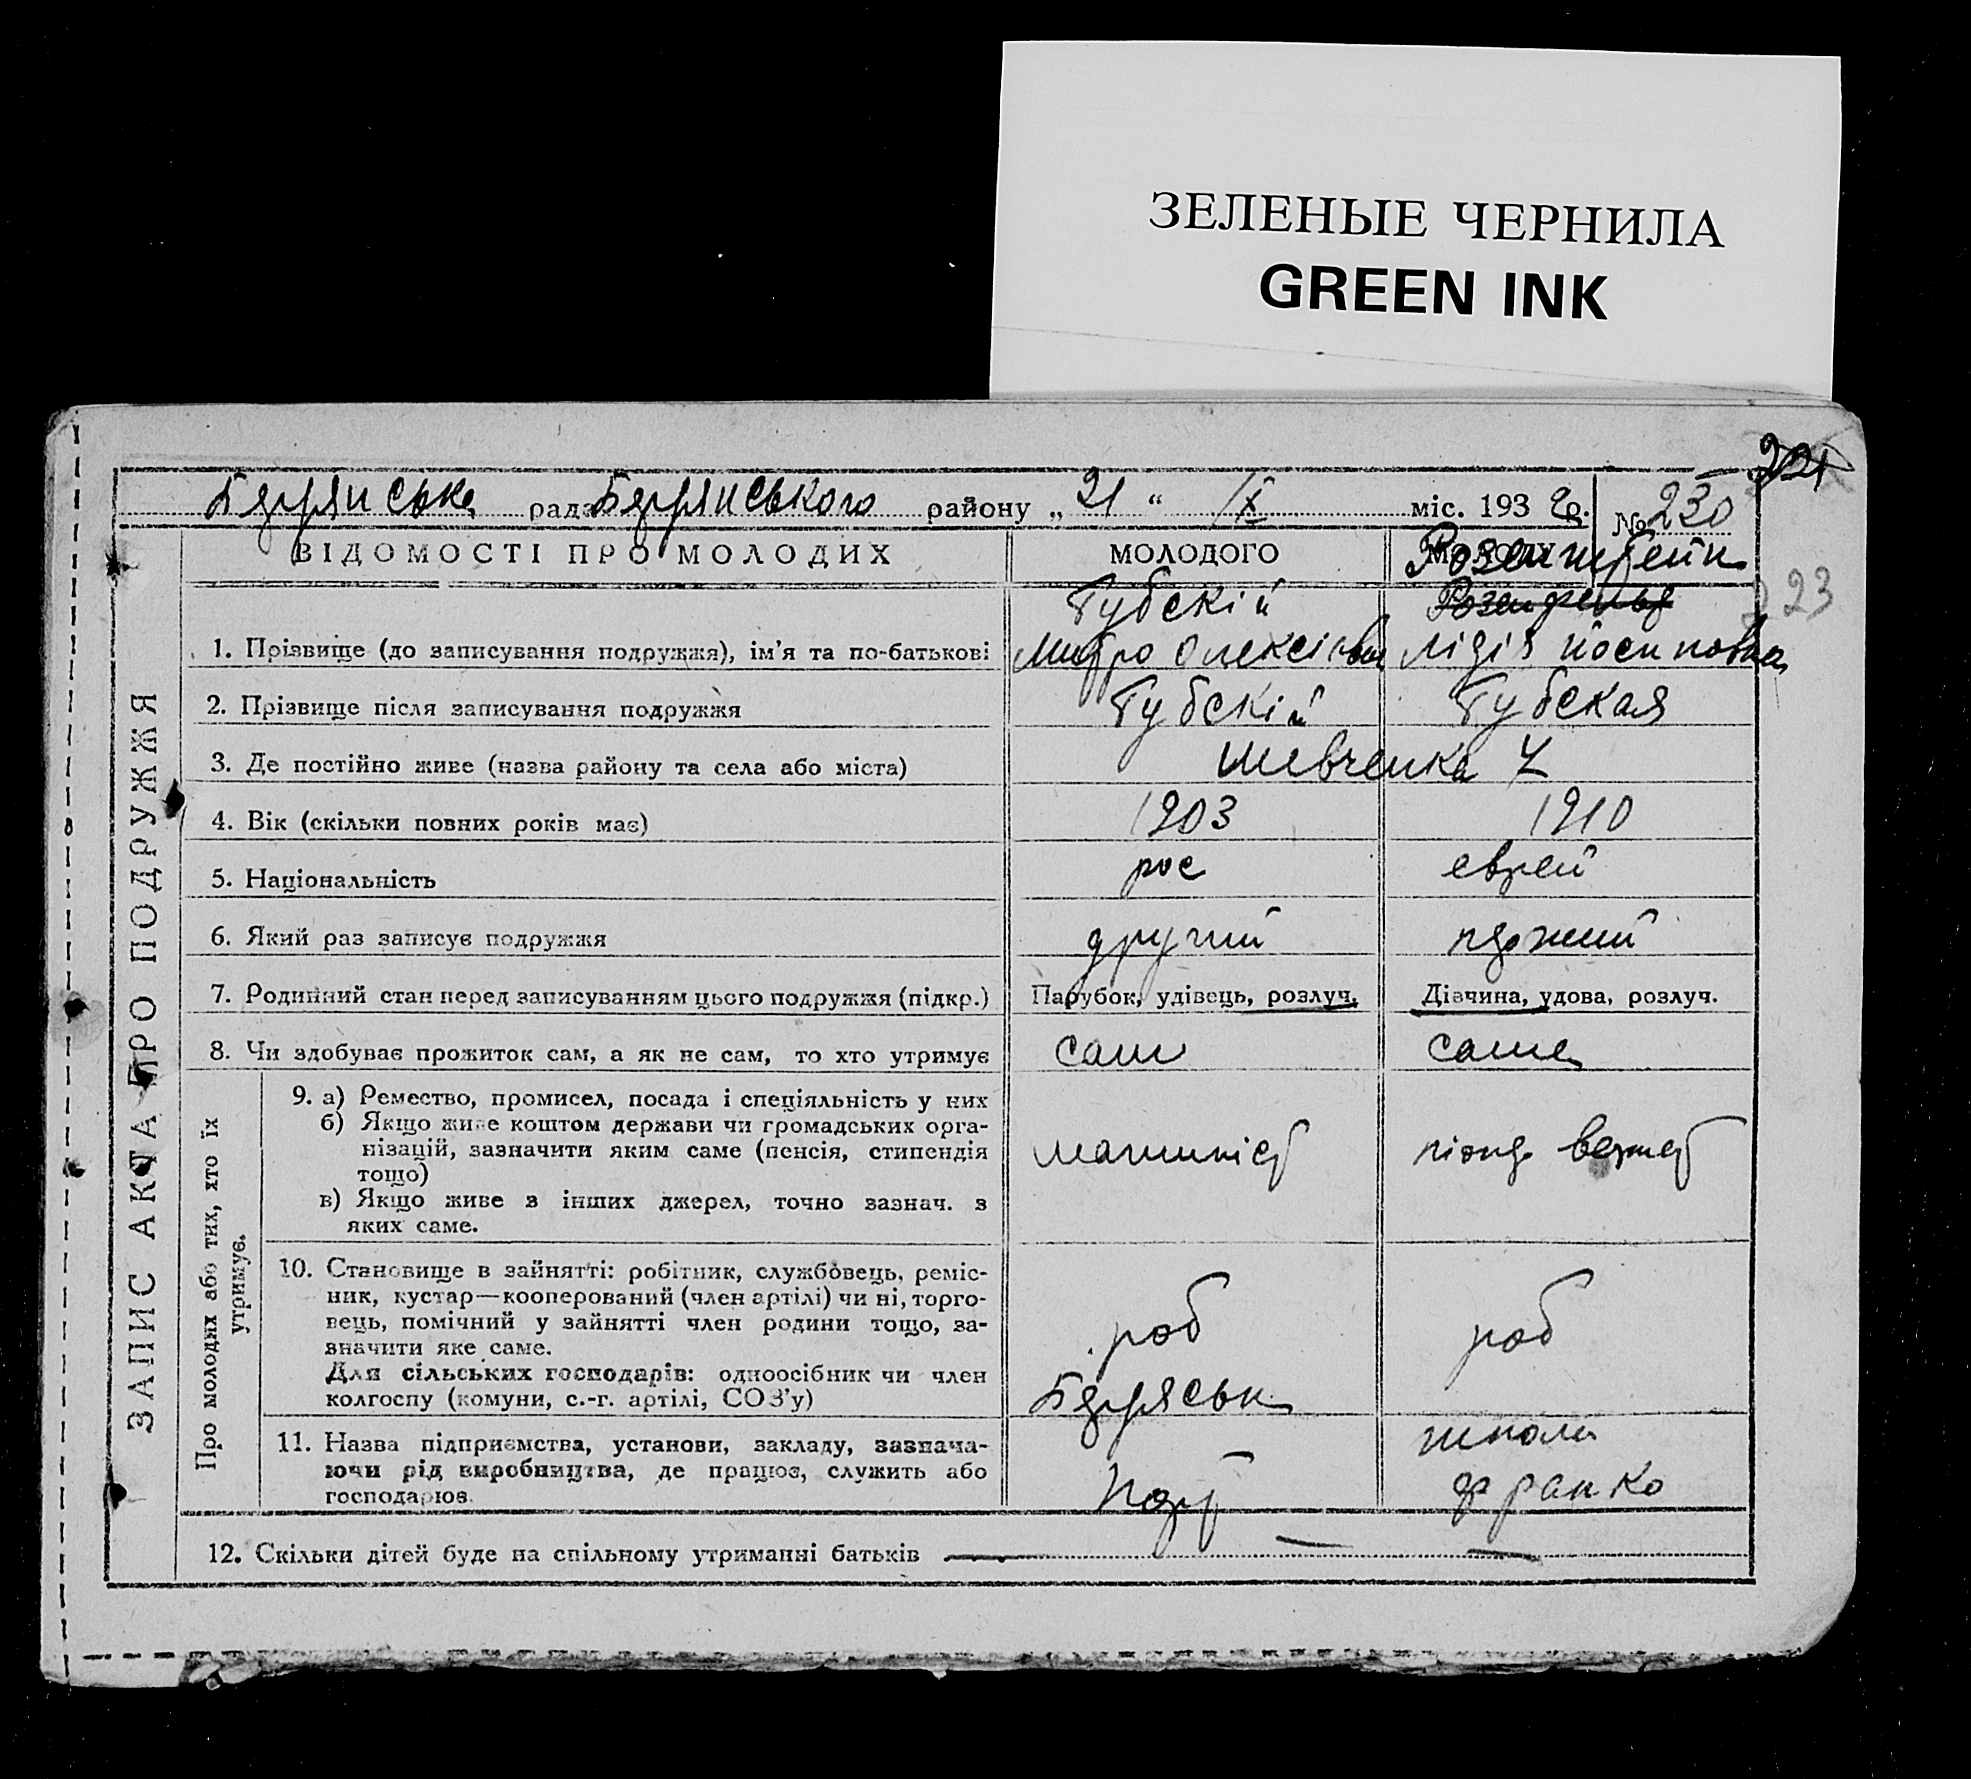 ЗЕЛЕНЫЕ ЧЕРНИЛА
GREEN INK
Бердянська рада Бердянського району „ 21 “ IX міс. 193 2р. № 230
ВІДОМОСТІ ПРО МОЛОДИХ МОЛОДОГО
Розенштейн
223
Губскій Розенфельд
1. Прізвище (до записування подружжя), ім'я та по-батькові Митро Олексієвич Лідія Йосиповна
2. Прізвище після записування подружжя Губскій Губская
3. Де постійно живе (назва району та села або міста) Шевченка
4. Вік (скільки повних років має) 1903 1910
5. Національність рос еврей
6. Який раз записує подружжя другий перший
7. Родинний стан перед записуванням цього подружжя (підкр.) Парубок, удівець, розлуч. Дівчина, удова, розлуч.
8. Чи здобуває прожиток сам, а як не сам, то хто утримує сам сама
ЗАПИС АКТА ПРО ПОДРУЖЖЯ
Про молодих або тих, хто їх утримує.
9. а) Ремество, промисел, посада і спеціяльність у них
б) Якщо живе коштом держави чи громадських орга-
нізацій, зазначити яким саме (пенсія, стипендія
тощо)
машиніст піонер вожат
в) Якщо живе з інших джерел, точно зазнач. з
яких саме.
10. Становище в зайнятті: робітник, службовець, реміс-
ник, кустар—кооперований (член артілі) чи ні, торго-
вець, помічний у зайнятті член родини тощо, за-
значити яке саме.
роб роб
Для сільських господарів: одноосібник чи член
колгоспу (комуни, с.-г. артілі, СОЗ'у)
Бердяськ
11. Назва підприємства, установи, закладу, зазнача-
ючи рід виробництва, де працює, служить або
господарює.
Порт
школа
Франко
12. Скільки дітей буде на спільному утриманні батьків —